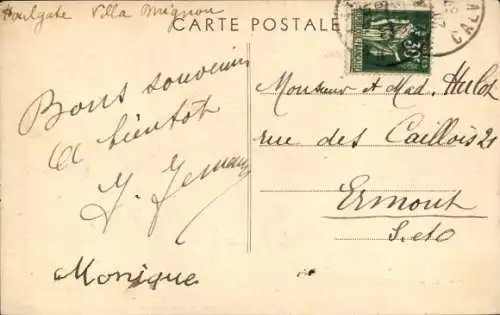 Houlgate Villa Mignon
CARTE POSTALE
Bons souvenirs
A bientôt
Monique
Monsieur et Mad. Hulot
rue des Caillois 21
Ermont
S. et O